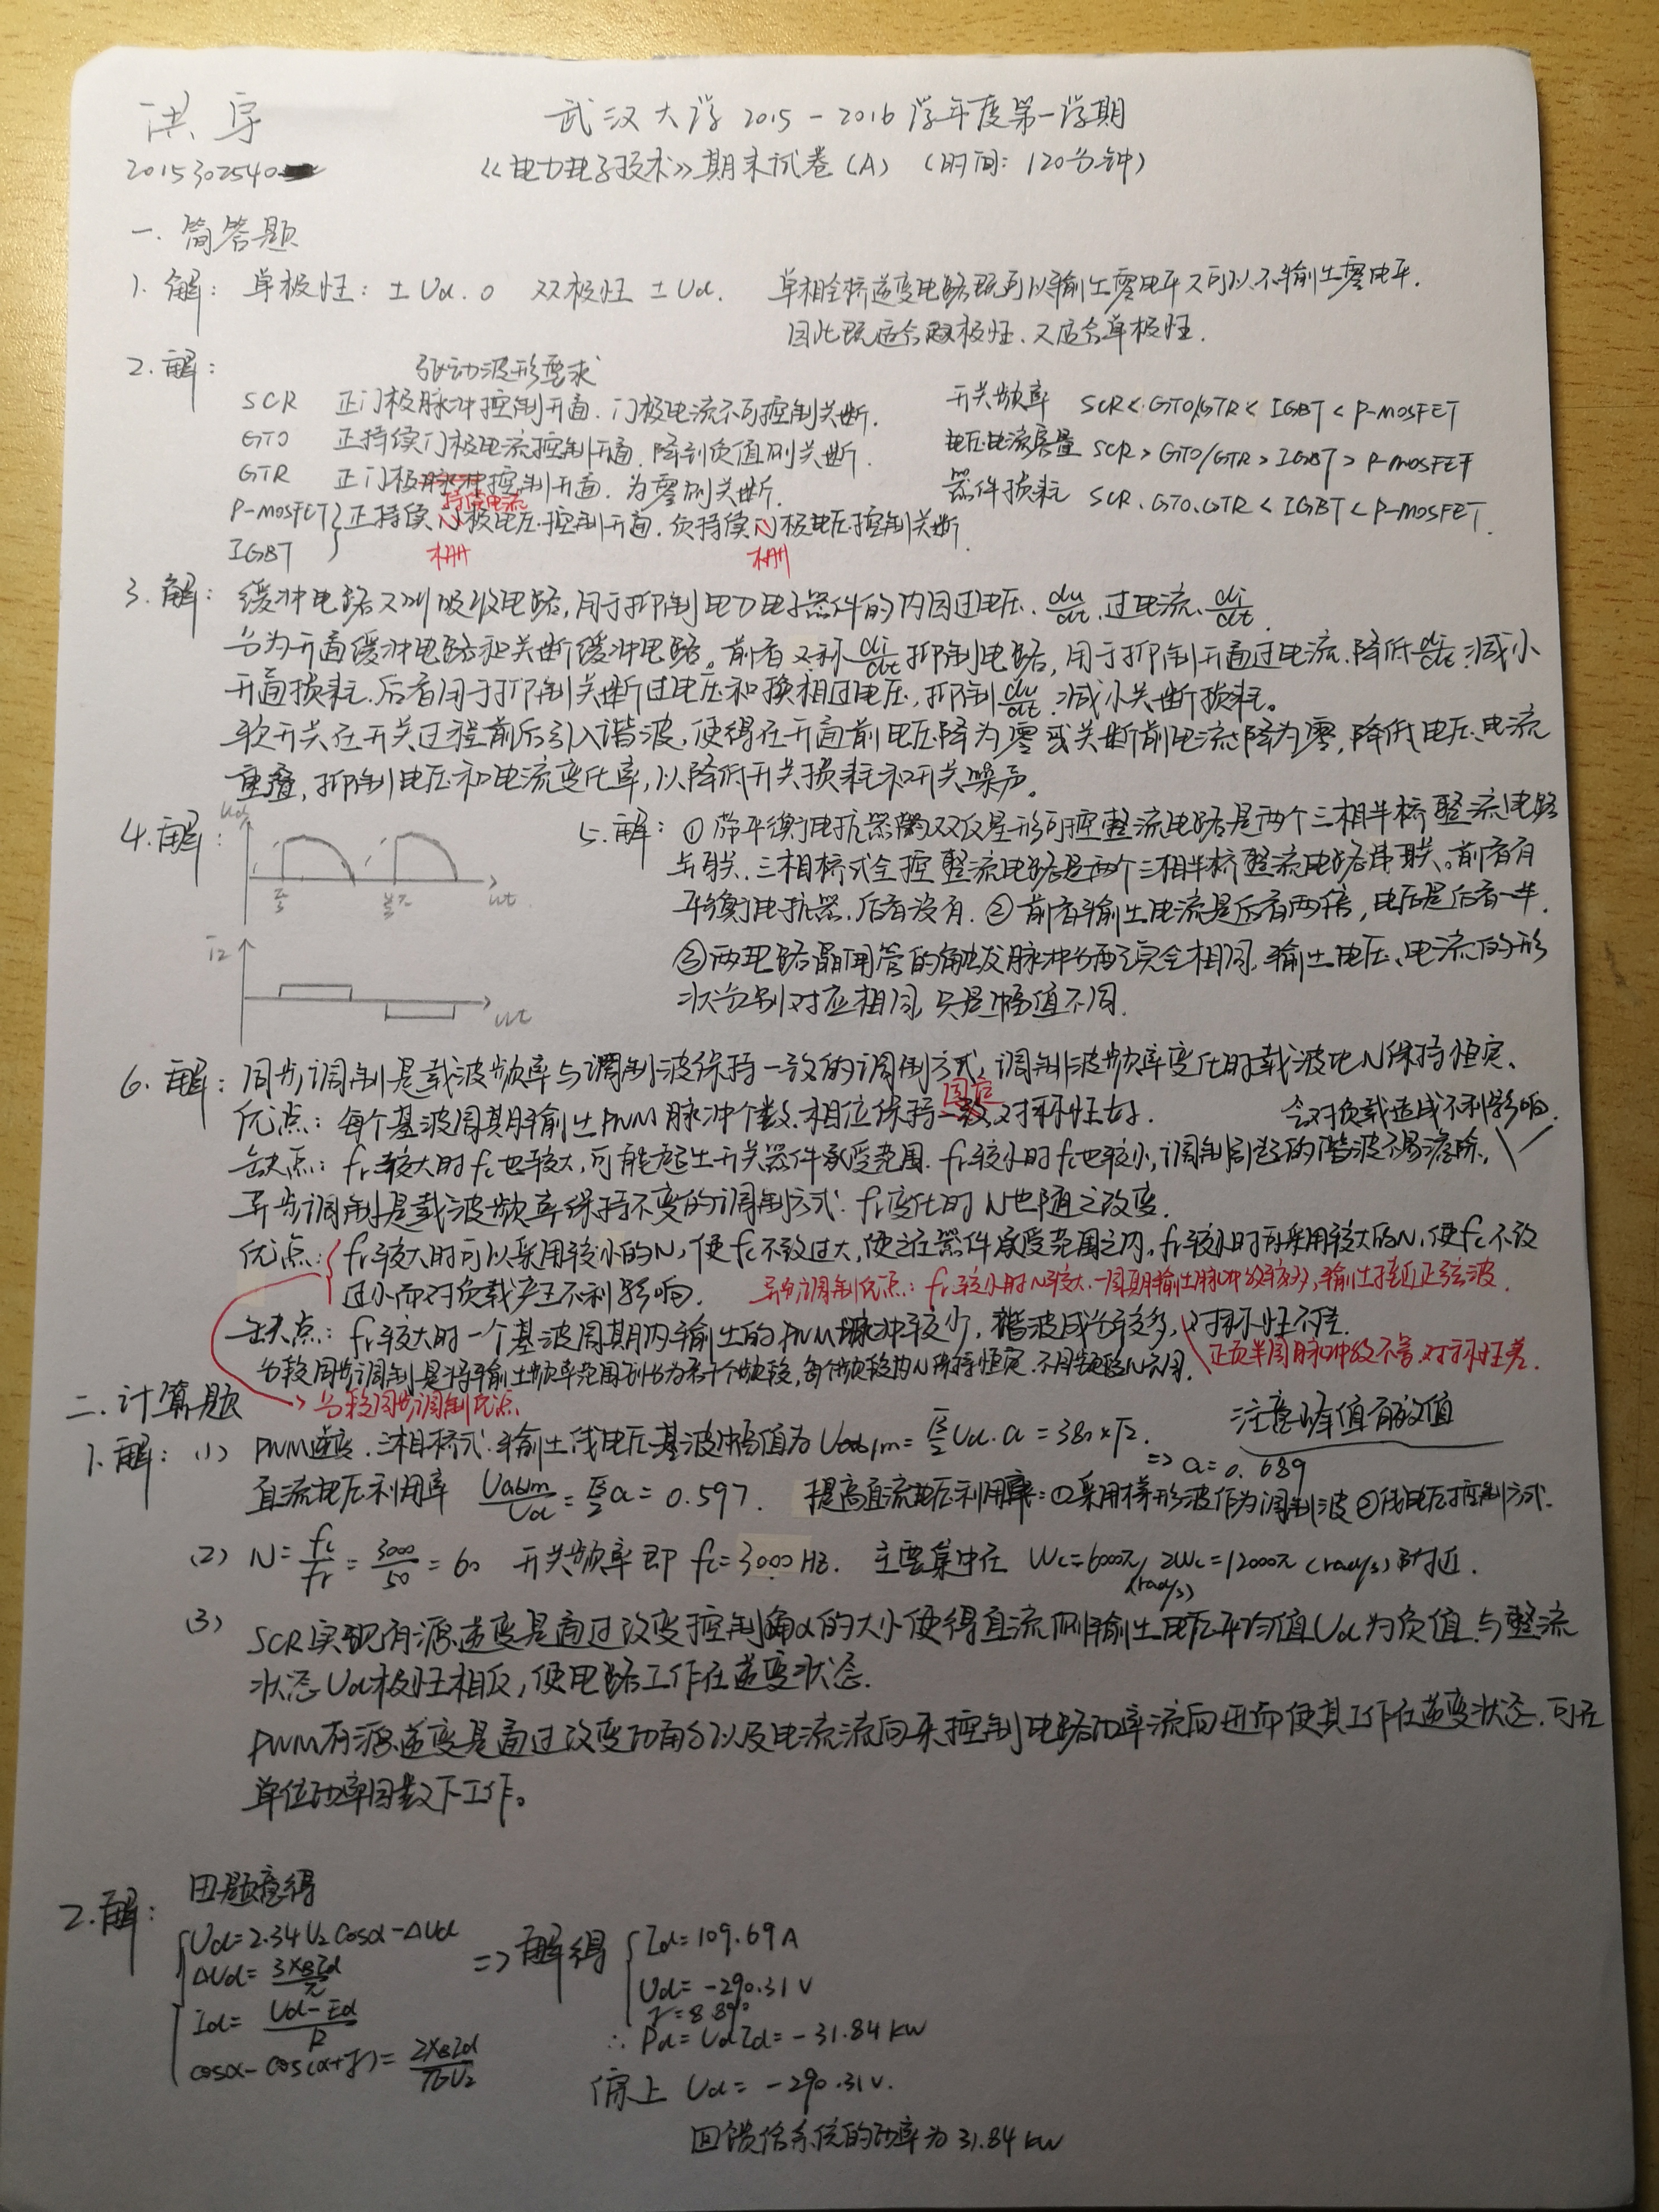 洪宇
武汉大学 2015-2016 学年度第一学期
2015302540
《电力电子技术》期末试卷(A) (时间: 120分钟)
一. 简答题
1. 解: 单极性: ±Ud. 0 双极性 ±Ud. 单相全桥逆变电路既可以输出零电平又可以不输出零电平.
因此既适合双极性、又适合单极性.
2. 解: 驱动波形要求
SCR 正门极脉冲控制开通. 门极电流不可控制关断.
GTO 正持续门极电流控制开通. 降到负值则关断.
GTR 正门极持续电流控制开通. 为零则关断.
P-MOSFET
IGBT } 正持续栅极电压控制开通. 负持续栅极电压控制关断
开关频率 SCR < GTO/GTR < IGBT < P-MOSFET
电压电流容量 SCR > GTO/GTR > IGBT > P-MOSFET
器件损耗 SCR、GTO、GTR < IGBT < P-MOSFET.
3. 解: 缓冲电路又叫吸收电路, 用于抑制电力电子器件的内因过电压、du/dt、过电流、di/dt.
分为开通缓冲电路和关断缓冲电路。前者又称di/dt抑制电路, 用于抑制开通过电流. 降低di/dt. 减小
开通损耗. 后者用于抑制关断过电压和换相过电压, 抑制du/dt. 减小关断损耗。
软开关在开关过程前后引入谐波, 使得在开通前电压降为零或关断前电流降为零, 降低电压、电流
重叠, 抑制电压和电流变化率, 以降低开关损耗和开关噪声。
4. 解: Ud
π/3 ωt
I2
ωt
5. 解: ①带平衡电抗器的双反星形可控整流电路是两个三相半桥整流电路
并联. 三相桥式全控整流电路是两个三相半桥整流电路串联。前者有
平衡电抗器. 后者没有. ②前者输出电流是后者两倍, 电压是后者一半.
③两电路晶闸管的触发脉冲分配完全相同, 输出电压、电流的形
状分别对应相同, 只是幅值不同.
6. 解: 同步调制是载波频率与调制波保持一致的调制方式, 调制波频率变化时载波比N保持恒定、
优点: 每个基波周期输出PWM脉冲个数、相位保持固定 对称性好.
缺点: fr较大时fc也较大, 可能超出开关器件承受范围. fr较小时fc也较小, 调制引起的谐波不易滤除, 会对负载造成不利影响.
异步调制是载波频率保持不变的调制方式. fr变化时N也随之改变.
优点: fr较大时可以采用较小的N, 使fc不致过大, 使之在器件承受范围之内. fr较小时可采用较大的N, 使fc不致
过小而对负载产生不利影响. 异步调制优点: fr较小时N较大. 一周期输出脉冲数较多, 输出接近正弦波.
缺点: fr较大时一个基波周期内输出的PWM脉冲较少, 谐波成分较多, 对称性不佳.
正负半周脉冲数不等. 对称性差.
分段同步调制是将输出频率范围划分为若干个频段, 每个频段内N保持恒定. 不同频段N不同.
→ 分段同步调制优点
二. 计算题
1. 解: (1) PWM逆变. 三相桥式. 输出线电压基波幅值为 Uab1m = √3/2 Ud·a = 380×√2. => a = 0.689
注意峰值有效值
直流电压利用率 Uabm/Ud = √3/2 a = 0.597. 提高直流电压利用率: ①采用梯形波作为调制波 ②线电压控制方式.
(2) N = fc/fr = 3000/50 = 60 开关频率即 fc = 3000 Hz. 主要集中在 Wc = 6000π (rad/s), 2Wc = 12000π (rad/s) 附近.
(3) SCR实现有源逆变是通过改变控制角α的大小使得直流侧输出电压平均值Ud为负值. 与整流
状态Ud极性相反, 使电路工作在逆变状态.
PWM有源逆变是通过改变功角δ以及电流流向来控制电路功率流向进而使其工作在逆变状态. 可在
单位功率因数下工作。
2. 解: 由题意得
Ud = 2.34 U2 cosα - ΔUd
ΔUd = 3XBId/π
Id = (Ud - Ed)/R
cosα - cos(α+γ) = 2XBId/√6U2
=> 解得 Id = 109.69 A
Ud = -290.31 V
γ = 8.89°
∴ Pd = UdId = -31.84 kW
综上 Ud = -290.31 V.
回馈给系统的功率为 31.84 kW